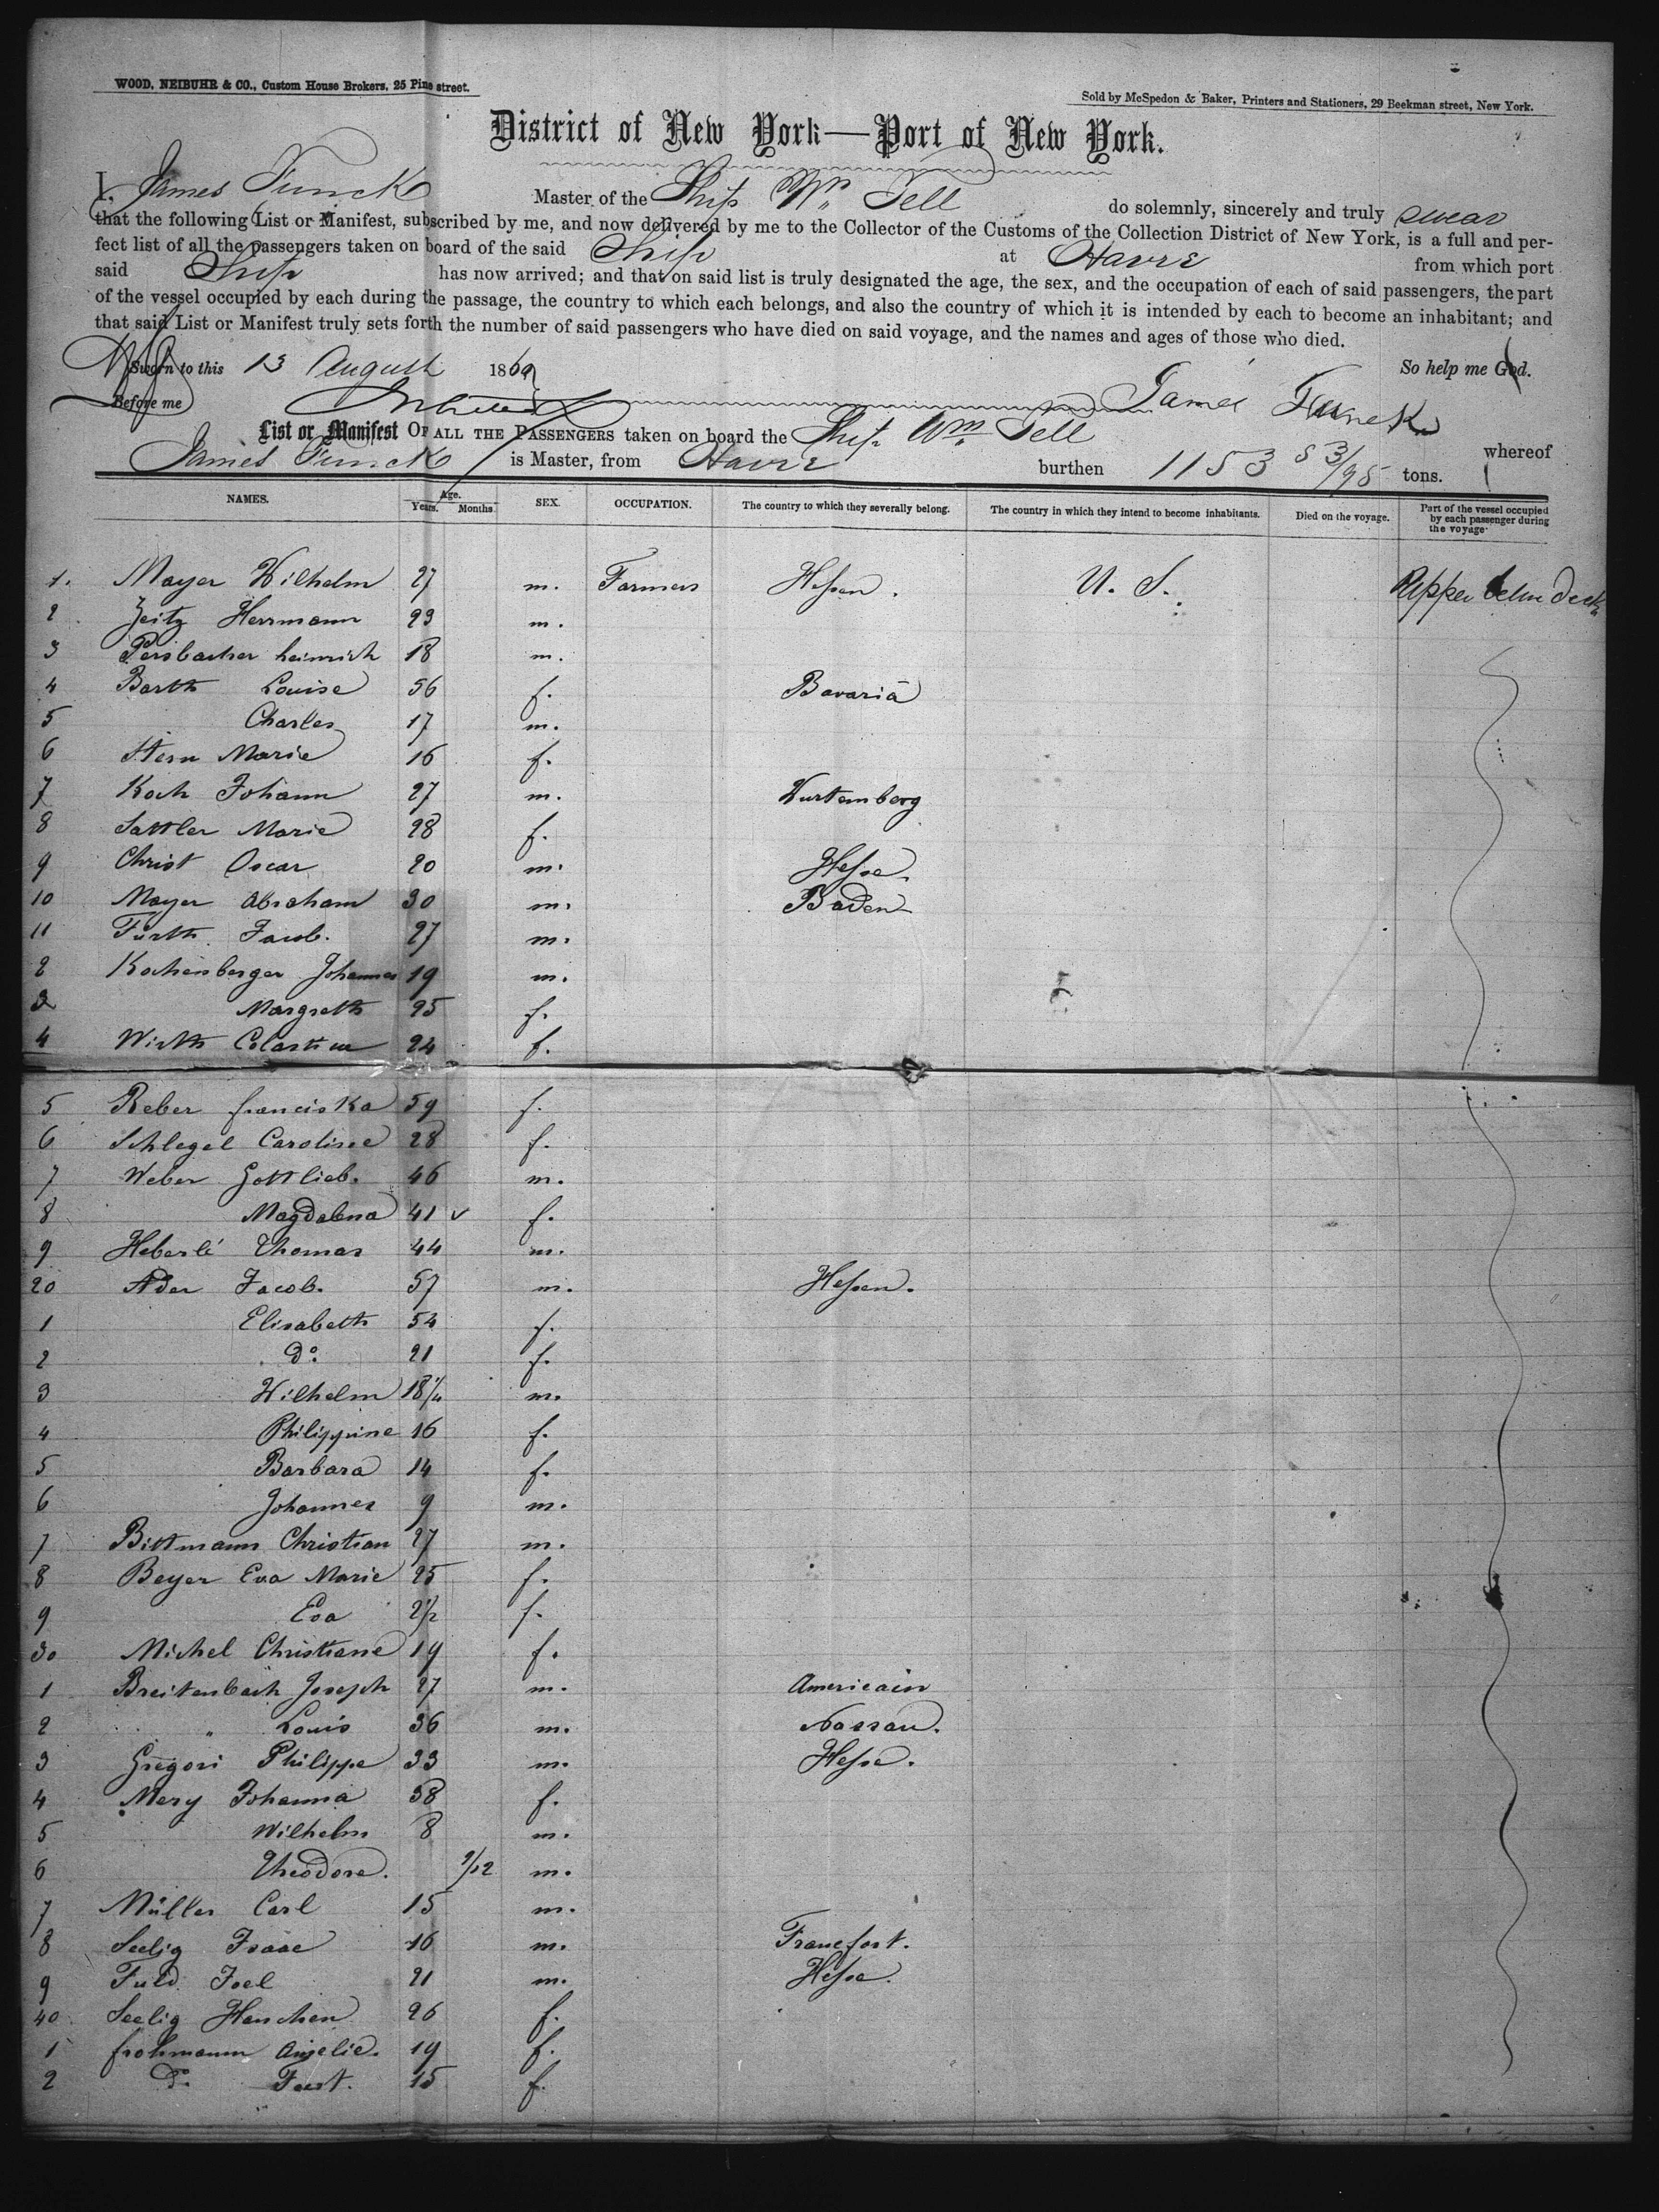 WOOD, NEIBUHR & CO., Custom House Brokers, 25 Pine street.
Sold by McSpedon & Baker, Printers and Stationers, 29 Beekman street, New York.
District of New York—Port of New York.
I, James Funck Master of the Ship Wm Tell do solemnly, sincerely and truly swear
that the following List or Manifest, subscribed by me, and now delivered by me to the Collector of the Customs of the Collection District of New York, is a full and per-
fect list of all the passengers taken on board of the said Ship at Havre from which port
said Ship has now arrived; and that on said list is truly designated the age, the sex, and the occupation of each of said passengers, the part
of the vessel occupied by each during the passage, the country to which each belongs, and also the country of which it is intended by each to become an inhabitant; and
that said List or Manifest truly sets forth the number of said passengers who have died on said voyage, and the names and ages of those who died.
Sworn to this 13 August 1860 So help me God.
Before me James Funck
List or Manifest OF ALL THE PASSENGERS taken on board the Ship Wm Tell whereof
James Funck is Master, from Havre burthen 1153 53/95 tons.
NAMES. Age. Years. Months. SEX. OCCUPATION. The country to which they severally belong. The country in which they intend to become inhabitants. Died on the voyage. Part of the vessel occupied by each passenger during the voyage
1. Mayer Wilhelm 27 m. Farmers Hessen. U. S. Upper betw deck
2 Zeitz Herrmann 23 m.
3 Persbacher heinrich 18 m.
4 Barth Louise 56 f. Bavaria
5 Charles 17 m.
6 Stern Marie 16 f.
7 Koch Johann 27 m. Wurtemberg
8 Sattler Marie 28 f.
9 Christ Oscar 20 m. Hesse.
10 Mayer Abraham 30 m. Baden
11 Fürth Jacob. 27 m.
2 Kochersberger Johannes 19 m.
3 Margreth 25 f.
4 Wirth 24 f.
5 Reber franciska 59 f.
6 Schlegel Caroline 28 f.
7 Weber Gottlieb. 46 m.
8 Magdalena 41 f.
9 Heberlé Thomas 44 m.
20 Ader Jacob. 57 m. Hessen.
1 Elisabeth 54 f.
2 do. 21 f.
3 Wilhelm 18 1/4 m.
4 Philippine 16 f.
5 Barbara 14 f.
6 Johannes 9 m.
7 Bittmann Christian 27 m.
8 Beyer Eva Marie 25 f.
9 Eva 2 1/2 f.
30 Michel Christiane 19 f.
1 Breitenbach Joseph 27 m. Americain
2 " Louis 36 m. Nassau.
3 Gregori Philippe 33 m. Hesse.
4 Mery Johanna 38 f.
5 Wilhelm 8 m.
6 Theodore. 9/12 m.
7 Müller Carl 15 m.
8 Seelig Isaac 16 m. Francfort.
9 Fuld Joel 21 m. Hesse.
40 Seelig Hanchen 26 f.
1 frohmann Amelie. 19 f.
2 do. 15 f.